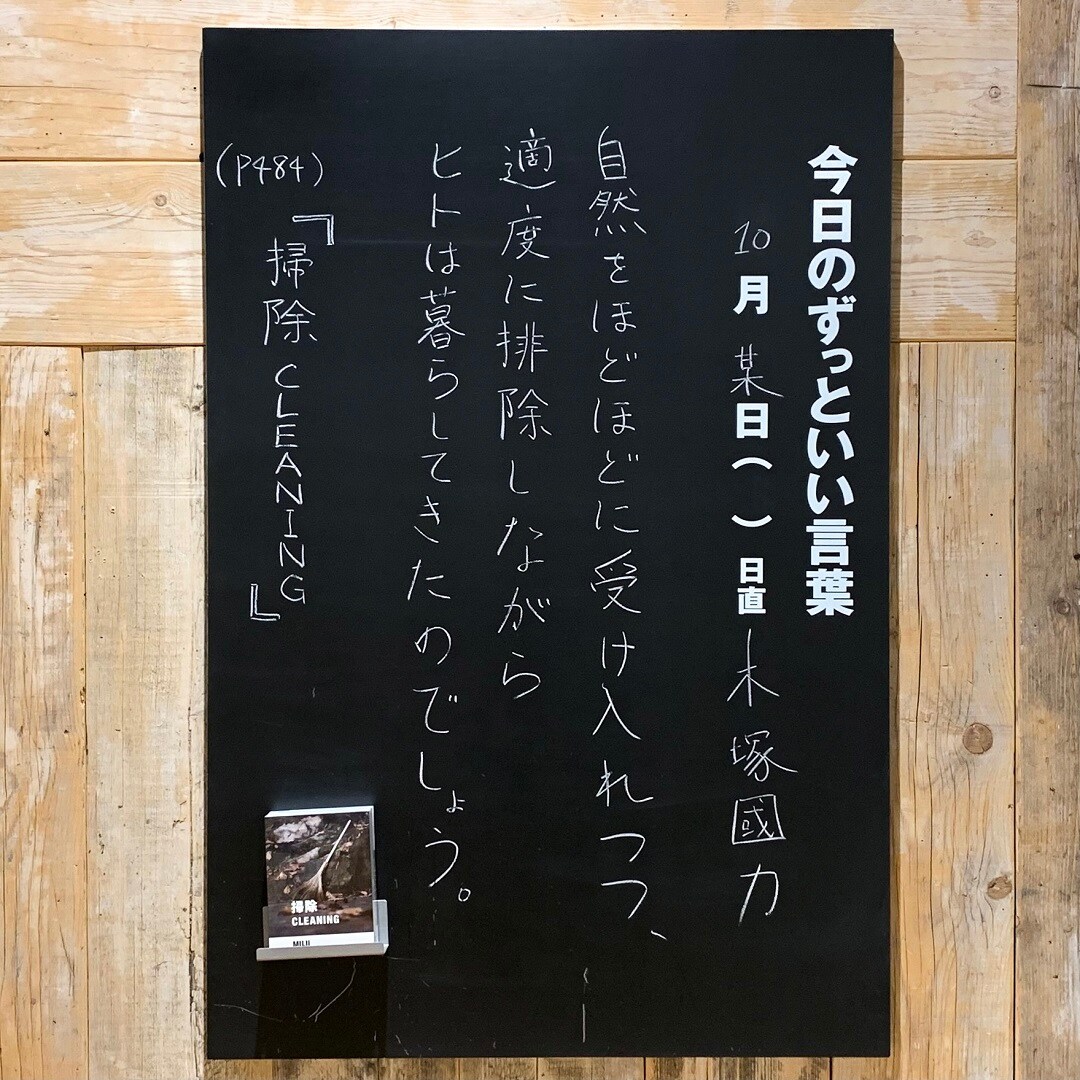 今日のずっといい言葉
10月某日( )日直 木塚國力
自然をほどほどに受け入れつつ、
適度に排除しながら
ヒトは暮らしてきたのでしょう。
『掃除CLEANING』
(P484)
掃除
CLEANING